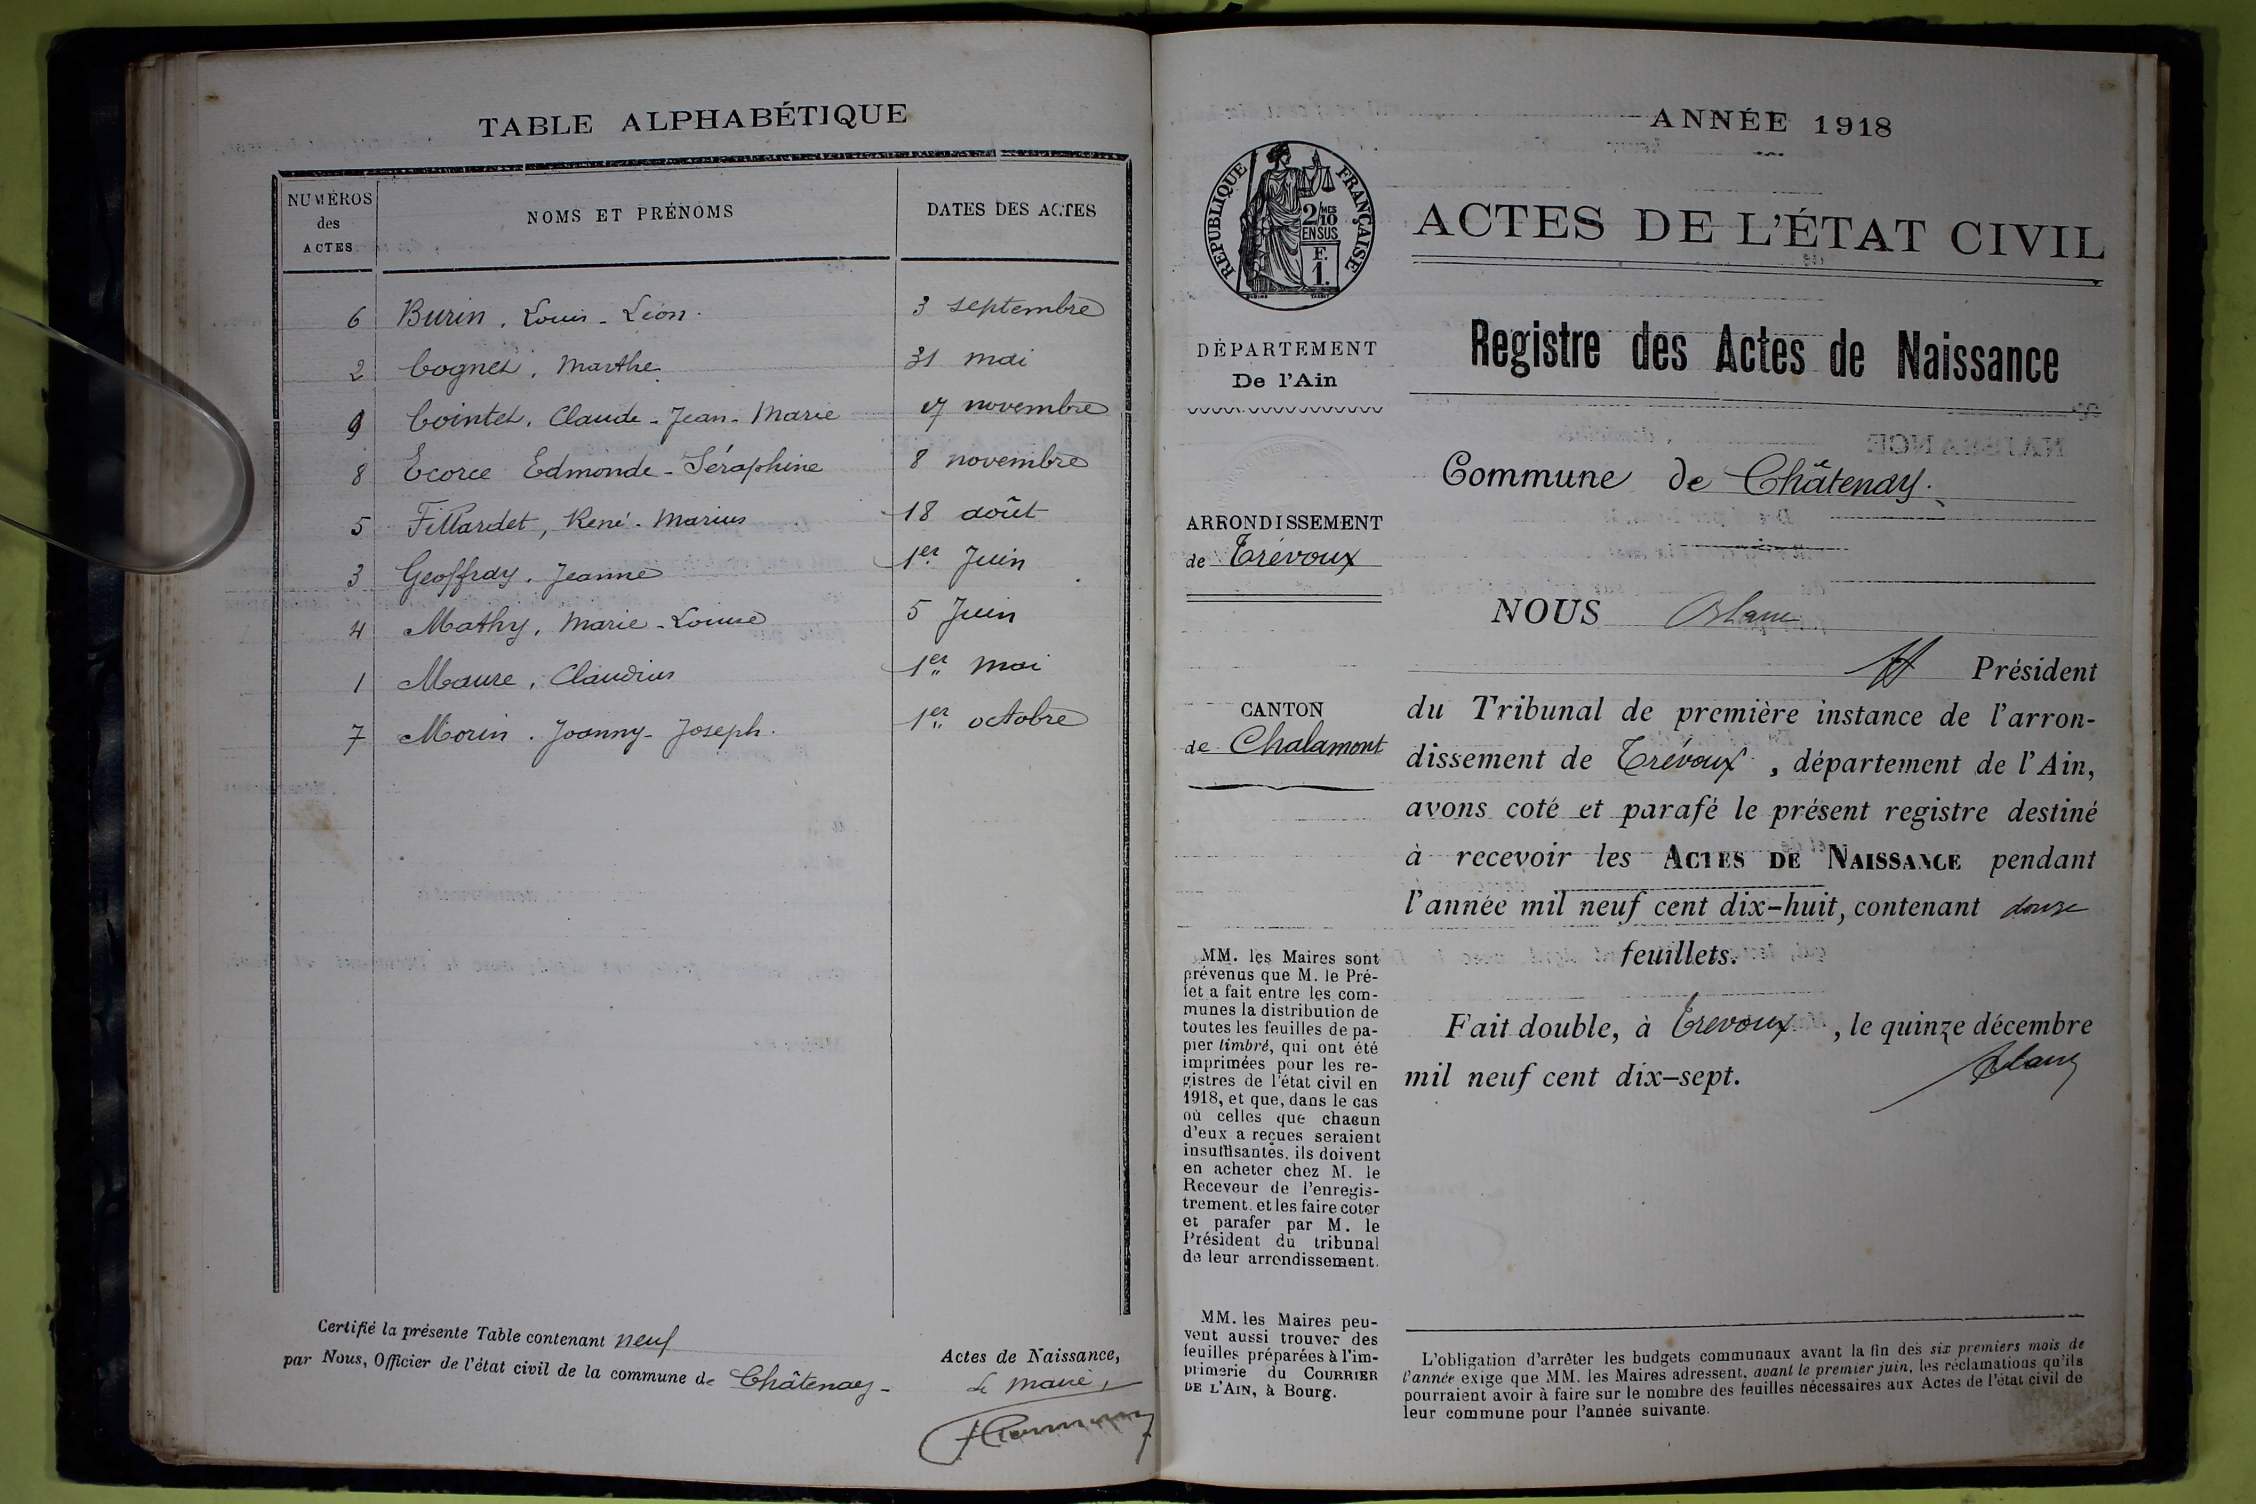 TABLE ALPHABÉTIQUE
NUMÉROS des ACTES
NOMS ET PRÉNOMS
DATES DES ACTES
6 Burin, Louis-Léon. 3 septembre
2 Cognet, Marthe. 31 mai
9 Cointet, Claude-Jean-Marie 17 novembre
8 Ecorce Edmonde-Séraphine 8 novembre
5 Fillardet, René-Marius 18 août
3 Geoffray, Jeanne 1er Juin
4 Mathy, Marie-Louise 5 Juin
1 Maure, Claudius 1er mai
7 Morin, Joanny-Joseph. 1er octobre
Certifié la présente Table contenant neuf Actes de Naissance,
par Nous, Officier de l'état civil de la commune de Châtenay-
Le maire,
ANNÉE 1918
RÉPUBLIQUE FRANÇAISE
2/10 MES
EN SUS
F.
1.
ACTES DE L'ÉTAT CIVIL
DÉPARTEMENT
De l'Ain
ARRONDISSEMENT
de Trévoux
CANTON
de Chalamont
MM. les Maires sont
prévenus que M. le Pré-
fet a fait entre les com-
munes la distribution de
toutes les feuilles de pa-
pier timbré, qui ont été
imprimées pour les re-
gistres de l'état civil en
1918, et que, dans le cas
où celles que chacun
d'eux a reçues seraient
insuffisantes, ils doivent
en acheter chez M. le
Receveur de l'enregis-
trement, et les faire coter
et parafer par M. le
Président du tribunal
de leur arrondissement.
MM. les Maires peu-
vent aussi trouver des
feuilles préparées à l'im-
primerie du COURRIER
DE L'AIN, à Bourg.
Registre des Actes de Naissance
Commune de Châtenay.
NOUS
Président
du Tribunal de première instance de l'arron-
dissement de Trévoux, département de l'Ain,
avons coté et parafé le présent registre destiné
à recevoir les ACTES DE NAISSANCE pendant
l'année mil neuf cent dix-huit, contenant douze
feuillets.
Fait double, à Trevoux, le quinze décembre
mil neuf cent dix-sept.
L'obligation d'arrêter les budgets communaux avant la fin des six premiers mois de
l'année exige que MM. les Maires adressent, avant le premier juin, les réclamations qu'ils
pourraient avoir à faire sur le nombre des feuilles nécessaires aux Actes de l'état civil de
leur commune pour l'année suivante.